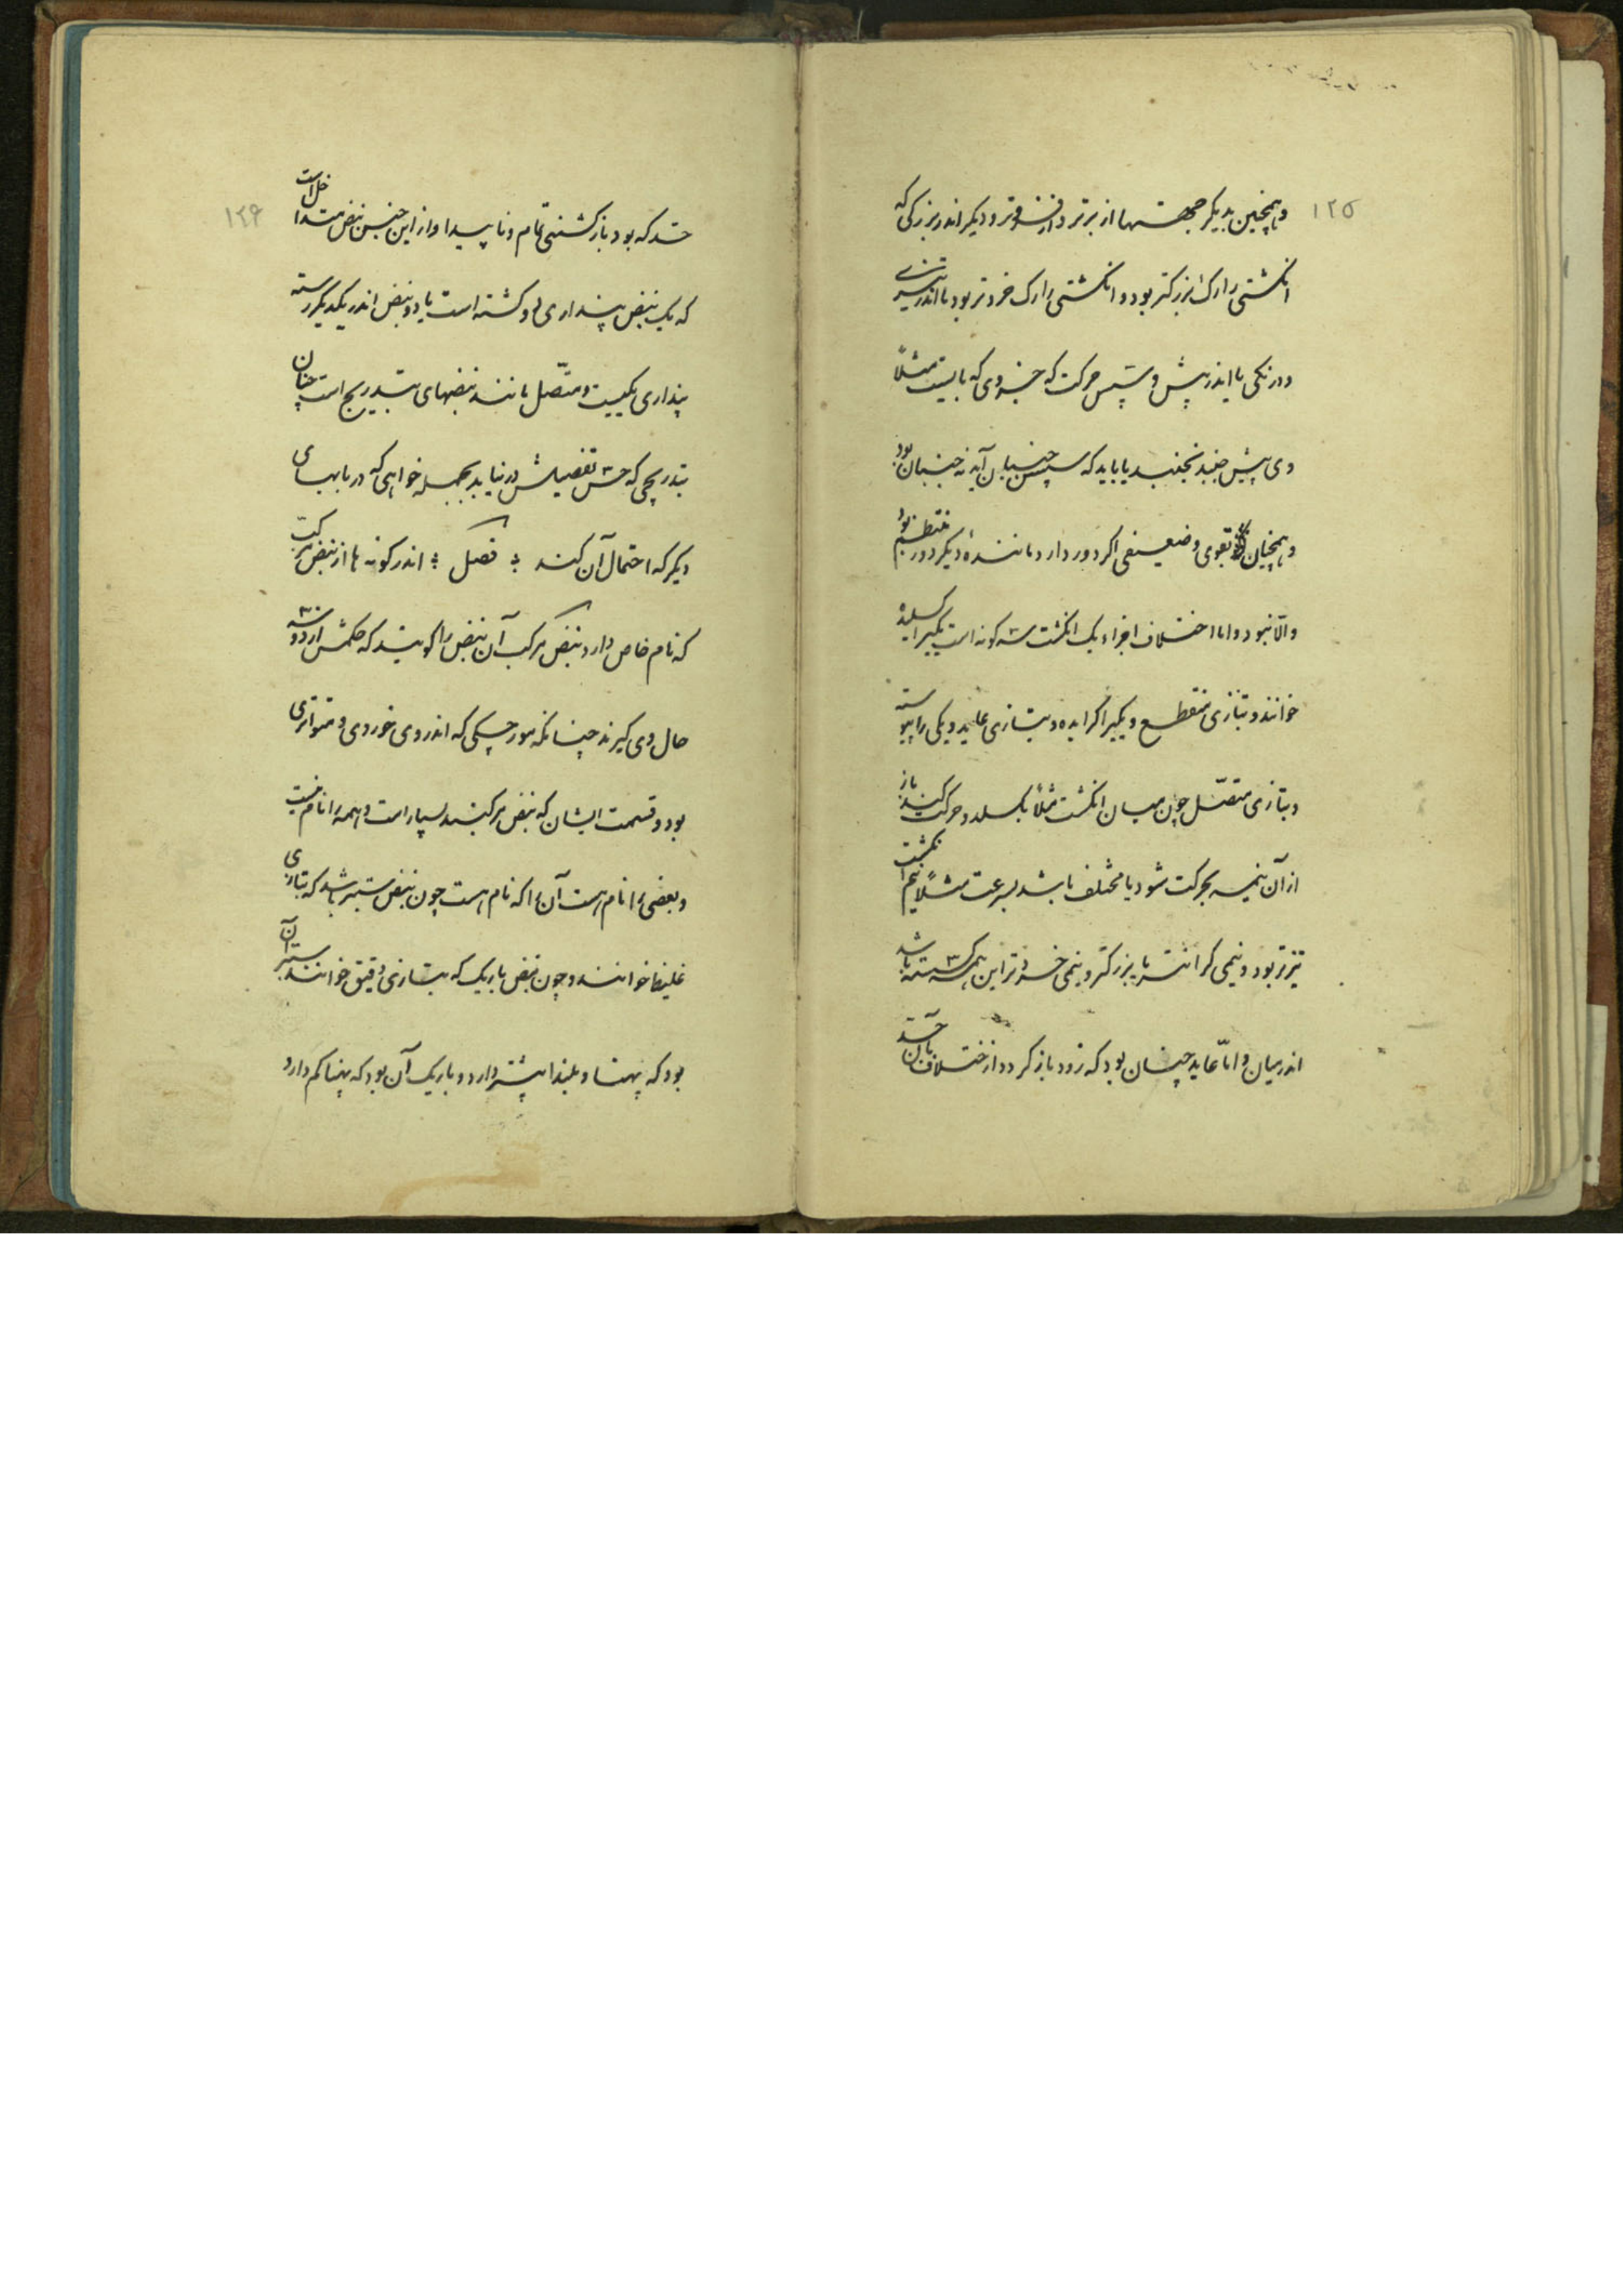 ۱۲۵
و همچنین بدیگر جهتها از برتر و از فروتر و دیگر اندر بزرگی که
انکشتی را رک بزرکتر بود و انکشتی را رک خردتر بود یا اندر تیزی
و درنکی یا اندر پیش و سپس حرکت که جزوی که بایست مثلاً
وی پیش جنبد نجنبد یا باید که سپس جنبان آید نه جنبان بود
و همچنان بقوی و ضعیفی اکر دور دارد مانندهٔ دیکر دور منتظم بود
والّا نبود و اما اختلاف اجزاء یک انکشت سه کونه است یکیرا کسلیده
خوانند و بتازی منقطع و یکیرا کراینده و بتازی عاید و یکی را پیوسته
و بتازی متصّل چون میان انکشت مثلاً بکسلد و حرکت کند باز
از آن نیمه بحرکت شود یا مختلف باشد بسرعت مثلاً نیم انکشت
تیزتر بود و نیمی کرانتر یا بزرکتر و نیمی خردتر این همه کسسته باشد
اندر میان و امّا عاید چنان بود که زود باز کردد از اختلاف بآن حد
۱۲۶
حد که بود بازکشتنی تمام و ناپیدا و از این جنس نبض متداخل است
که یک نبض پنداری دو کشته است یا دو نبض اندر یکدیکر رسته
پنداری یکیست و متّصل مانند نبضهای بتدریج است چنان
بتدریجی که حس تفصیلش در نیابد بجمله خواهی که در بابهای
دیکر که احتمال آن کند فصل اندر کونه ها از نبض مرکب
که نام خاص دارد نبض مرکب آن نبض را کویند که حکمش از دو سه
حال وی کیرند چنانکه مورچکی که اندر وی خوردی و متواتری
بود و قسمت ایشان که نبض مرکبند بسیار است و همه را نام نیست
و بعضی را نام هست آن را که نام هست چون نبض ستبر باشد که بتازی
غلیظ خوانند و چون نبض باریک که بتازی دقیق خوانند ستبر آن
بود که پهنا و بلندا بیشتر دارد و باریک آن بود که پهنا کم دارد